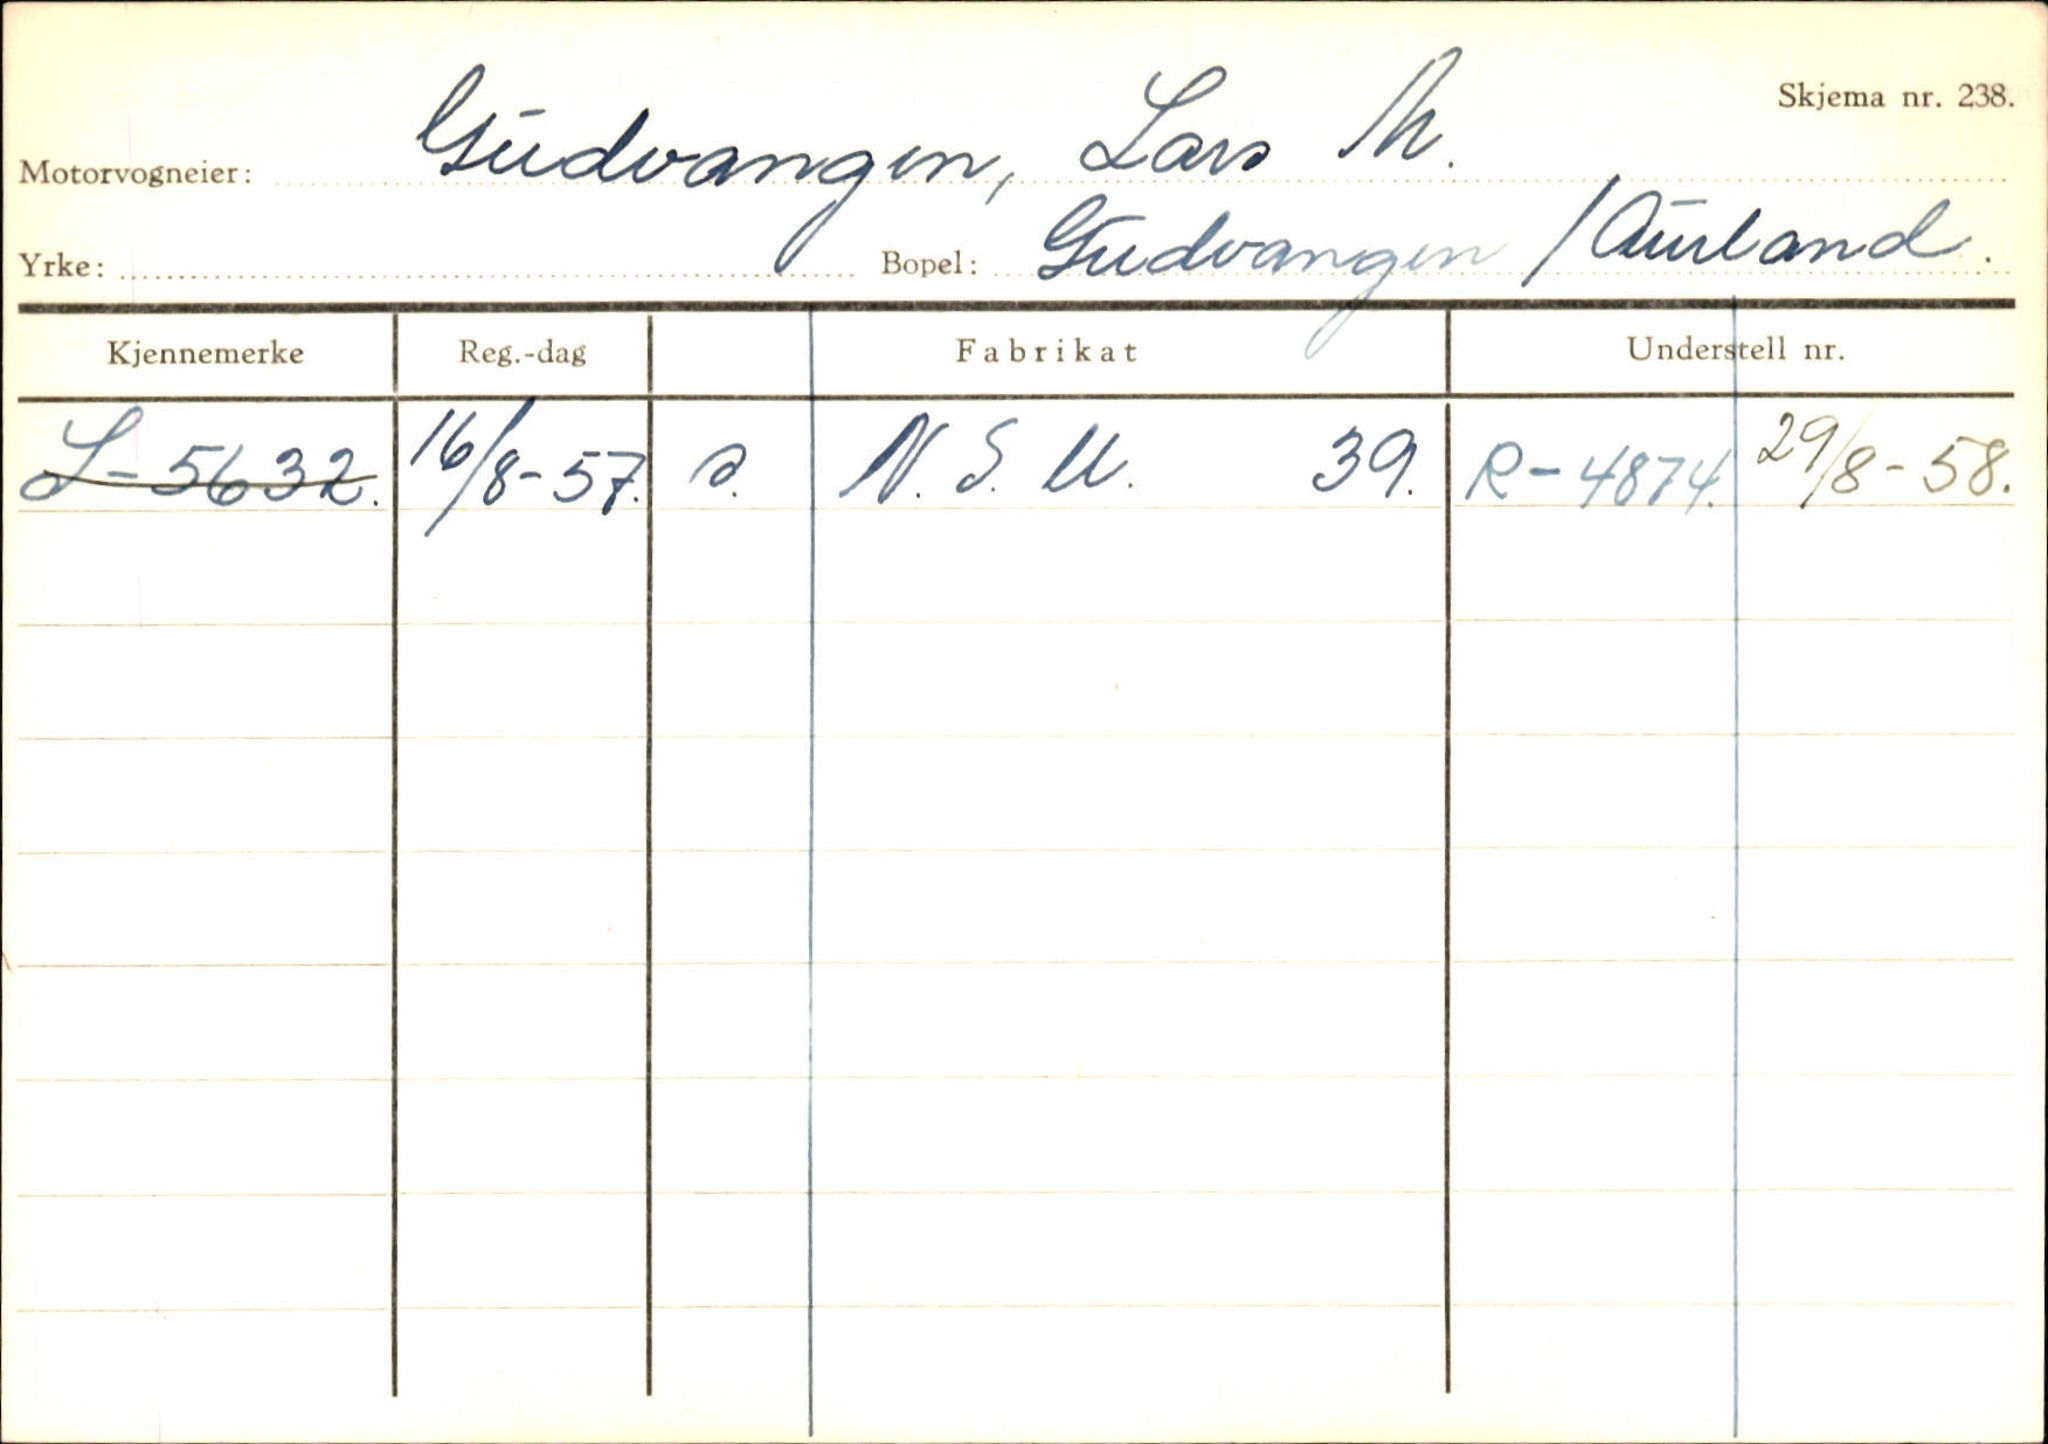 Skjema nr. 238.
Motorvogneier: Gudvangen, Lars M.
Yrke: Bopel: Gudvangen / Aurland.
Kjennemerke Reg.-dag Fabrikat Understell nr.
L-5632. 16/8-57. s. N.S.U. 39. R-4874. 29/8-58.